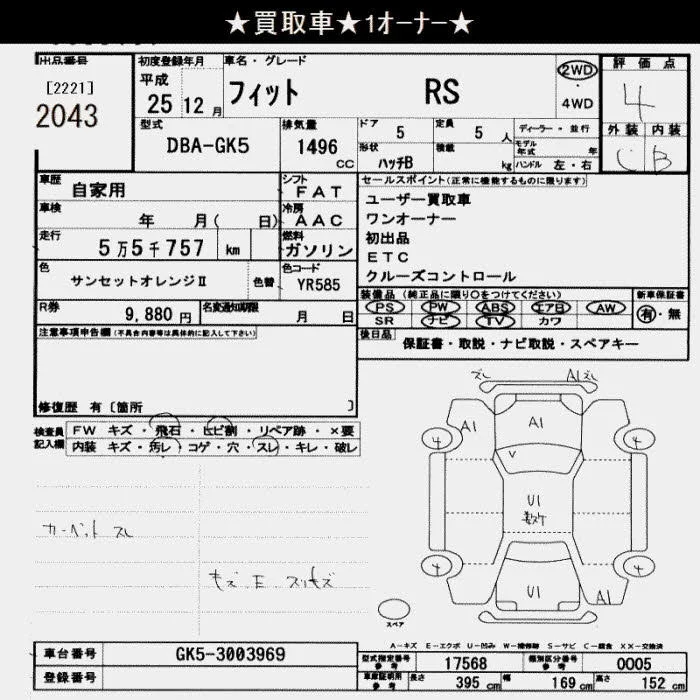 ★買取車★1オーナー★
出品番号 初度登録年月 車名・グレード 評価点
[2221] 平成 フィット RS 2WD 4
2043 25 12月 4WD
外装 内装
型式 排気量 ドア 5 定員 5人 ディーラー・並行 C B
DBA-GK5 1496 CC 形状 ハッチB 積載 kg モデル年式 年
ハンドル 左・右
車歴 自家用 シフト FAT セールスポイント(正常に機能するものに限ります)
車検 年 月( 日) 冷房 AAC ユーザー買取車
走行 5万5千757 km 燃料 ガソリン ワンオーナー
初出品
ETC
クルーズコントロール
色 サンセットオレンジⅡ 色替 色コード YR585
R券 9,880円 名変通知期限 月 日
装備品(純正品に限り○をつけてください) 新車保証書
PS PW ABS エアB AW 有・無
SR ナビ TV カワ
注意事項申告欄(不具合内容等は具体的に記入して下さい)
後日品 保証書・取説・ナビ取説・スペアキー
修復歴 有〔箇所 〕
検査員記入欄
FW キズ・飛石・ヒビ割・リペア跡・×要
内装 キズ・汚レ・コゲ・穴・スレ・キレ・破レ
カーペット スレ
ズレ A1 ズレ
A1 A1
4 4
U1
4 4
U1 A1
スペア
A-キズ E-エクボ U-凹み W-補修跡 S-サビ C-腐食 XX-交換済
車台番号 GK5-3003969 型式指定番号 参考 17568 類別区分番号 参考 0005
登録番号 車庫証明用 参考 長さ 395 cm 幅 169 cm 高さ 152 cm